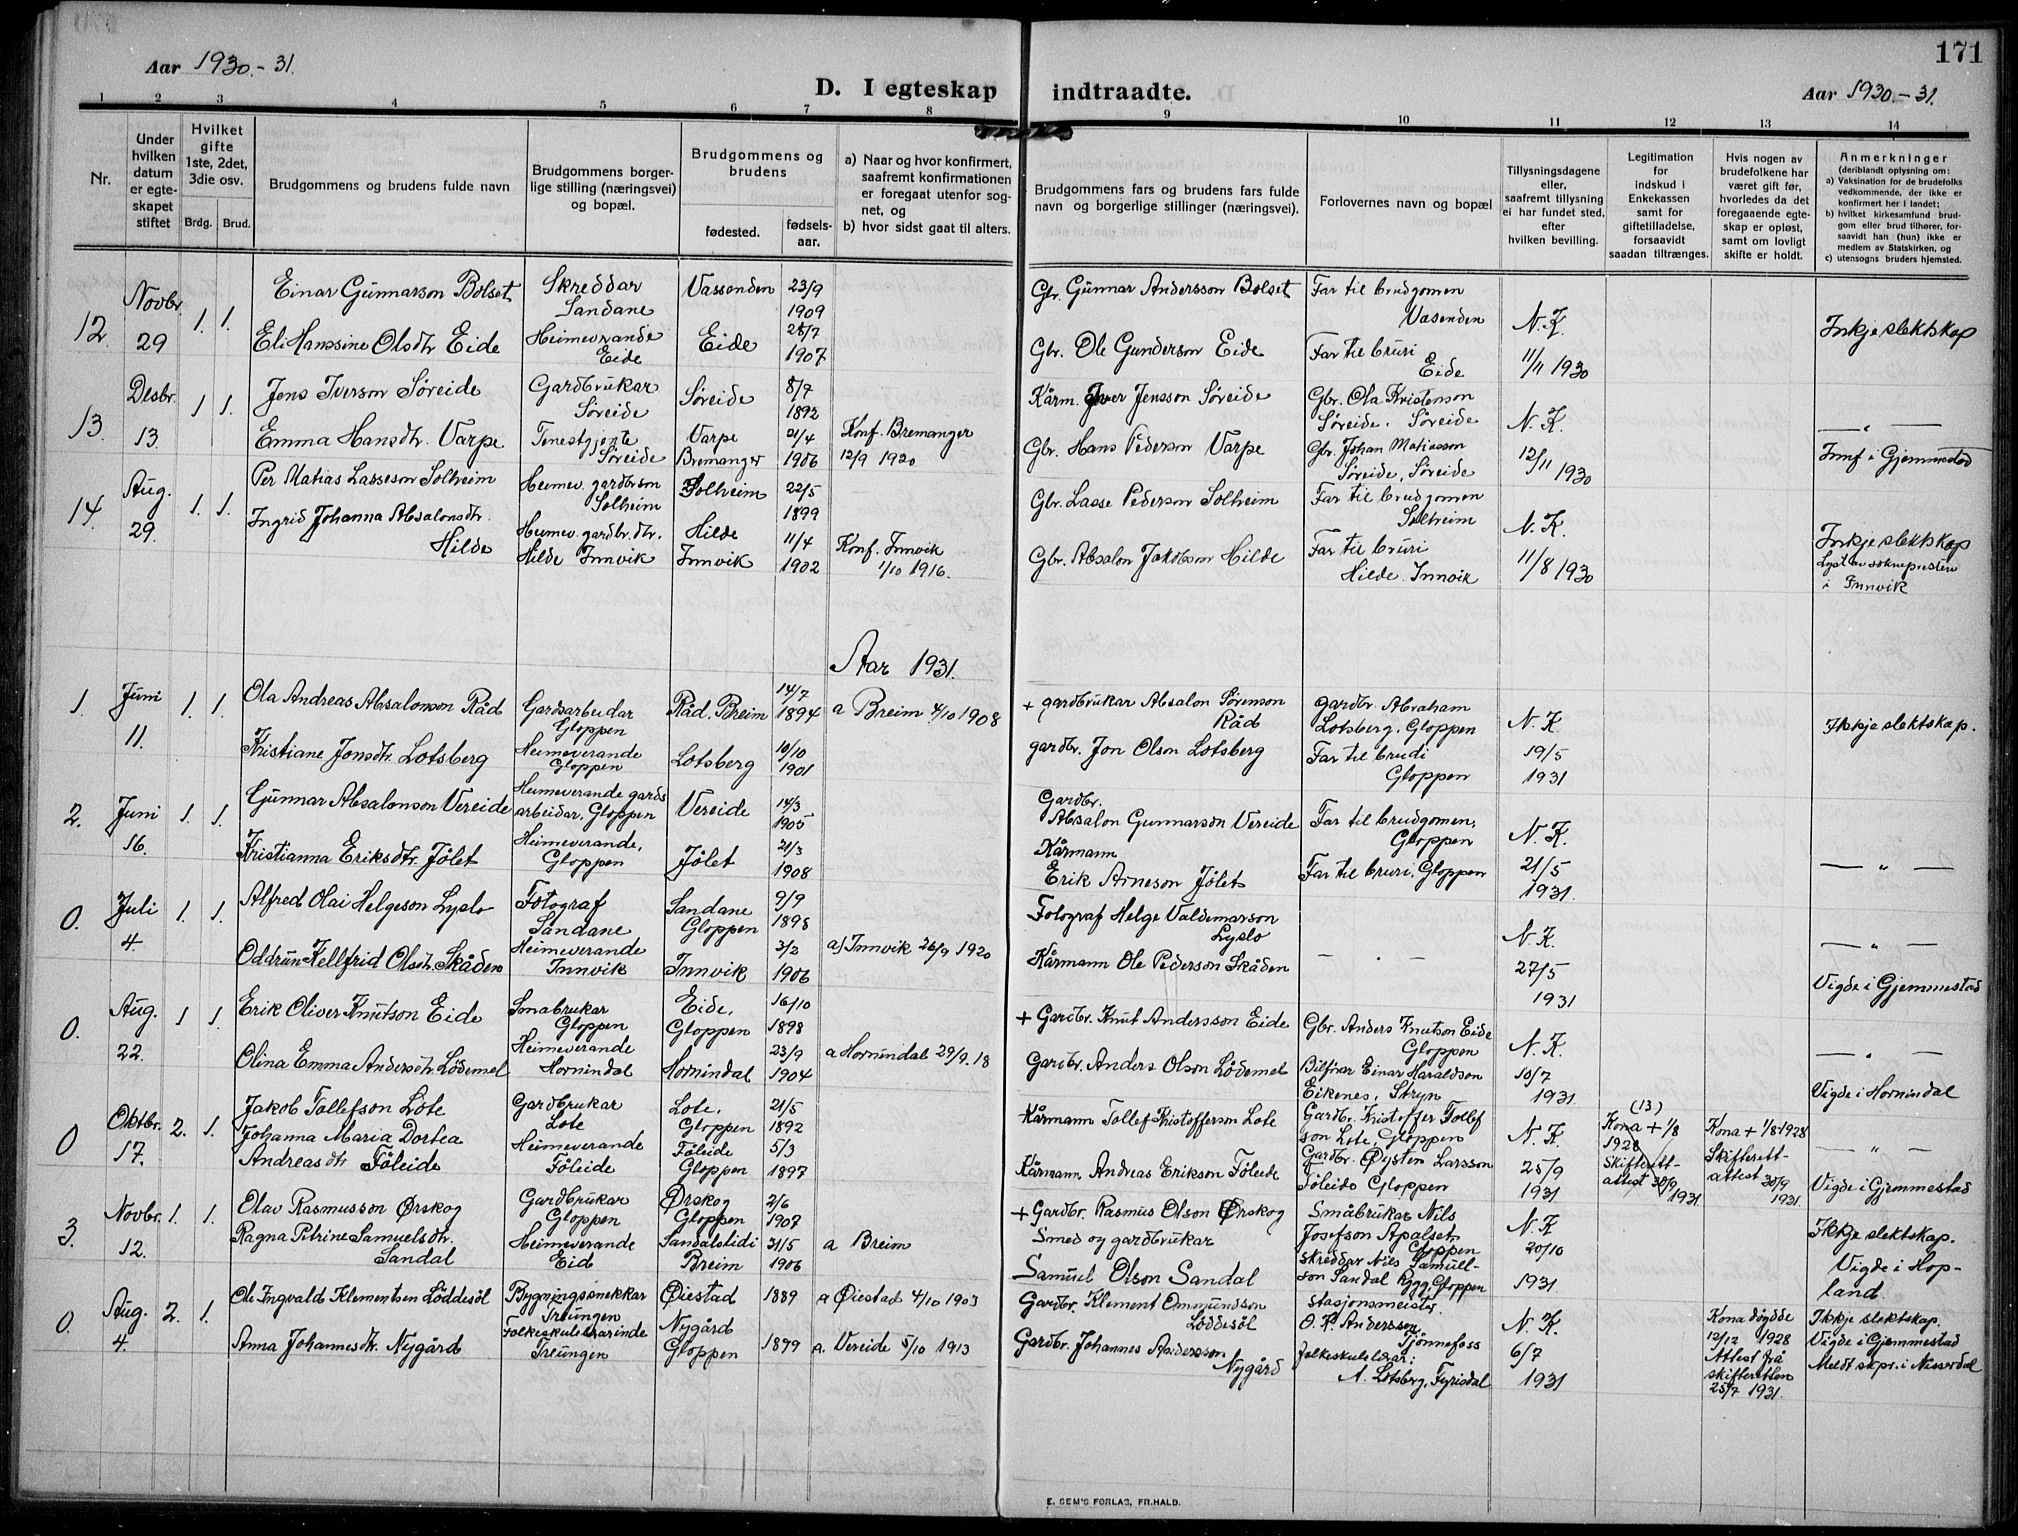 171
Aar 1930.-31.
D. I egteskap indtraadte.
Aar 1930.-31.
1 2 3 4 5 6 7 8 9 10 11 12 13 14
Nr.
Under hvilken datum er egte-skapet stiftet
Hvilket gifte 1ste, 2det, 3die osv.
Brdg. Brud.
Brudgommens og brudens fulde navn
Brudgommens borger-lige stilling (næringsvei) og bopæl.
Brudgommens og brudens
fødested.
fødsels-aar.
a) Naar og hvor konfirmert, saafremt konfirmationen er foregaat utenfor sog-net, og
b) hvor sidst gaat til alters.
Brudgommens fars og brudens fars fulde navn og borgerlige stillinger (næringsvei).
Forlovernes navn og bopæl
Tillysningsdagene eller, saafremt tillysning ei har fundet sted, efter hvilken bevilling.
Legitimation for indskud i Enkekassen samt for giftetilladelse, forsaavidt saadan tiltrænges.
Hvis nogen av brudefolkene har været gift før, hvorledes da det foregaaende egte-skap er opløst, samt om lovligt skifte er holdt.
Anmerkninger
(deriblandt oplysning om:
a) Vaksination for de brudefolks vedkommende, der ikke er konfirmert her i landet;
b) hvilket kirkesamfund brud-gom eller brud tilhører, for-saavidt han (hun) ikke er medlem av Statskirken, og
c) utensogns bruders hjemsted.
12. Novbr. 29 1. 1.
Einar Gunnarson Bolset Skreddar Sandane Vassenden 23/9 1909
Gbr. Gunnar Andersson Bolset Far til brudgomen Vasenden
Eli Hanssine Olsdtr Eide Heimeverande Eide Eide 28/7 1907
Gbr. Ole Gunderson Eide Far til bruri Eide
N. K. 11/11 1930
Inkje slektskap
13. Desbr. 13. 1 1.
Jens Iverson Søreide Gardbrukar Søreide Søreide 8/7 1892
Kårm. Iver Jensson Søreide Gbr. Ola Kristenson Søreide. Søreide
Emma Hansdtr. Varpe Tenestgjente Søreide Varpe Bremanger 21/4 1906 Konf. Bremanger 12/9 1920
Gbr. Hans Pederson Varpe Gbr. Johan Matiasson Søreide, Søreide
N. K. 12/11 1930
— " —
Innf. i Gjemmestad
14. Aug. 29. 1. 1.
Per Matias Lasseson Solheim Heimev. gardbr.son Solheim Solheim 22/5 1899
Gbr. Lasse Pederson Solheim Far til brudgomen Solheim
Ingrid Johanna Absalonsdtr. Hilde Heimev. gardbr.dtr. Hilde Innvik Hilde Innvik 11/4 1902 Konf. Innvik 1/10 1916.
Gbr. Absalon Jakobson Hilde Far til bruri Hilde. Innvik
N. K. 11/8 1930
Inkje slektskap
Lyst av soknepresten i Innvik
Aar 1931.
1. Juni 11. 1. 1.
Ola Andreas Absalonson Råd Gardsarbeidar Gloppen Råd, Breim 14/7 1894 a Breim 4/10 1908
+ gardbrukar Absalon Sørenson Råd gardbr. Abraham Lotsberg, Gloppen
Kristiane Jonsdtr. Lotsberg Heimeverande Gloppen Lotsberg 10/10 1901
gardbr. Jon Olson Lotsberg Far til brudi Gloppen
N. K. 19/5 1931
Ikkje slektskap.
2. Juni 16. 1. 1.
Gunnar Absalonson Vereide Heimeverande gards arbeidar, Gloppen Vereide 14/3 1905
Gardbr. Absalon Gunnarson Vereide Far til brudgomen, Gloppen
Kristianna Eriksdtr. Jølet Heimeverande, Gloppen Jølet 21/3 1908
Kårmann Erik Arneson Jølet Far til bruri, Gloppen
N. K. 21/5 1931.
— " —
0. Juli 4. 1. 1.
Alfred Olai Helgeson Lyslo Fotograf Sandane Sandane Gloppen 9/9 1898
Fotograf Helge Valdemarson Lyslo
Oddrun Kellfrid Olsdtr. Skåden Heimeverande Innvik Innvik 3/2 1906 a) Innvik 26/9 1920
Kårmann Ole Pederson Skåden — . —
N. K. 27/5 1931
— " —
Vigde i Gjemmestad
0. Aug. 22. 1 1.
Erik Oliver Knutson Eide Småbrukar Gloppen Eide, Gloppen 16/10 1898
+ Gardbr. Knut Andersson Eide Gbr. Anders Knutson Eide Gloppen
Olina Emma Andersdtr Lødemel Heimeverande Hornindal Hornindal 23/9 1904 a Hornindal 29/9.18
Gardbr. Anders Olson Lødemel Bilfører Einar Haraldson Eikenes, Stryn
N. K. 10/7 1931
— " —
Vigde i Hornindal
0 Oktbr. 17. 2. 1.
Jakob Tollefson Lote Gardbrukar Lote Lote, Gloppen 21/5 1892
Kårmann Tollef Kristofferson Lote Gardbr. Kristoffer Tollefson Lote, Gloppen
Johanna Maria Dortea Andreasdtr Føleide Heimeverande Føleide Føleide Gloppen 5/3 1897
Kårmann Andreas Erikson Føleide Gardbr. Øysten Larsson Føleide Gloppen
N. K. 25/9 1931
(13) Kona + 1/8 1928 Skifterett-attest 30/9 1931
Kona + 1/8 1928 Skifterett-attest 30/9 1931.
— " —
Vigde i Gjemmestad
3. Novbr. 12. 1. 1.
Olav Rasmusson Ørskog Gardbrukar Gloppen Ørskog Gloppen 2/6 1907
+ Gardbr. Rasmus Olson Ørskog Småbrukar Nils Josefson Apalset Gloppen
Ragna Petrine Samuelsdtr. Sandal Heimeverande Eid Sandalslidi Breim 31/5 1906 a Breim
Smed og gardbrukar Samuel Olson Sandal skreddar Nils Samuelson Sandal Rygg, Gloppen
N. K 20/10 1931
Ikkje slektskap.
Vigde i Hop-land.
0. Aug. 4. 2. 1.
Ole Ingvald Klementsen Løddesøl Bygningssnekkar Treungen Øiestad 1889 a Øiestad 4/10 1903
Gardbr. Klement Ommundson Løddesøl Stasjonsmeister. O. K. Anderssen Tjønnefoss
Anna Johannesdtr. Nygård Folkeskulelærarinde Treungen Nygård Gloppen 1899 a. Vereide 5/10 1913
Gardbr. Johannes Andersson Nygård folkeskulelærar: A. Lotsberg, Fyrisdal
N. K. 6/7 1931
Kona døydde 12/12 1928 Attest frå skifteretten 25/7 1931.
Ikkje slektskap.
Vigde i Gjemmestad
Meldt skpr. i Nisserdal
E. SEM'S FORLAG, FR.HALD.